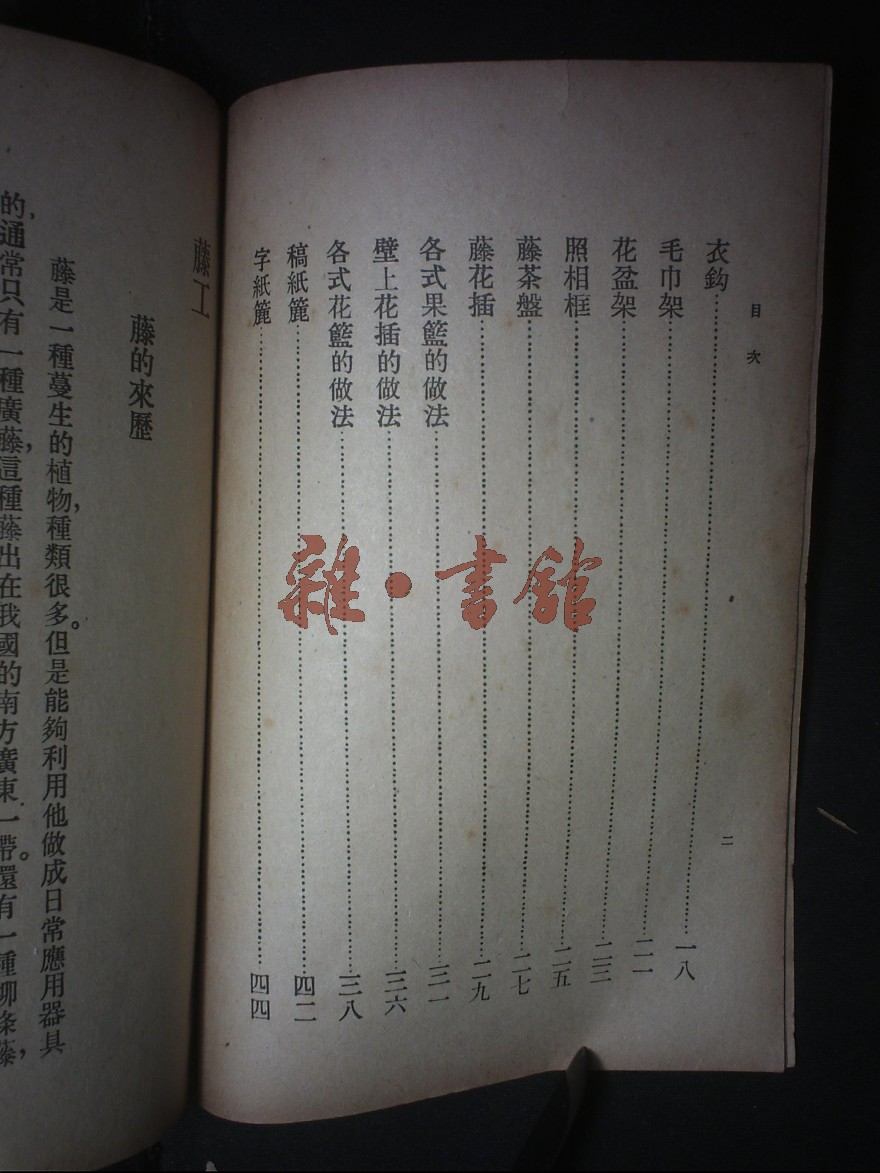 目次
衣鈎 一八
毛巾架 二一
花盆架 二三
照相框 二五
藤茶盤 二七
藤花插 二九
各式果籃的做法 三一
壁上花插的做法 三六
各式花籃的做法 三八
稿紙簏 四二
字紙簏 四四
二
雜·書館
藤工
藤的來歷
藤是一種蔓生的植物,種類很多。但是能夠利用他做成日常應用器具
的,通常只有一種廣藤,這種藤出在我國的南方廣東一帶。還有一種柳條藤,